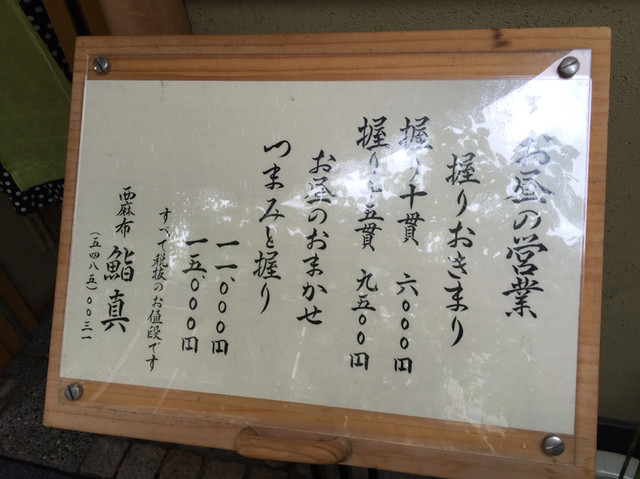 お昼の営業
握りおきまり
握り十貫 六〇〇〇円
握り十五貫 九五〇〇円
お昼のおまかせ
つまみと握り
一一、〇〇〇円
一五、〇〇〇円
すべて税抜のお値段です
西麻布 鮨真
(五四八五)〇〇三一